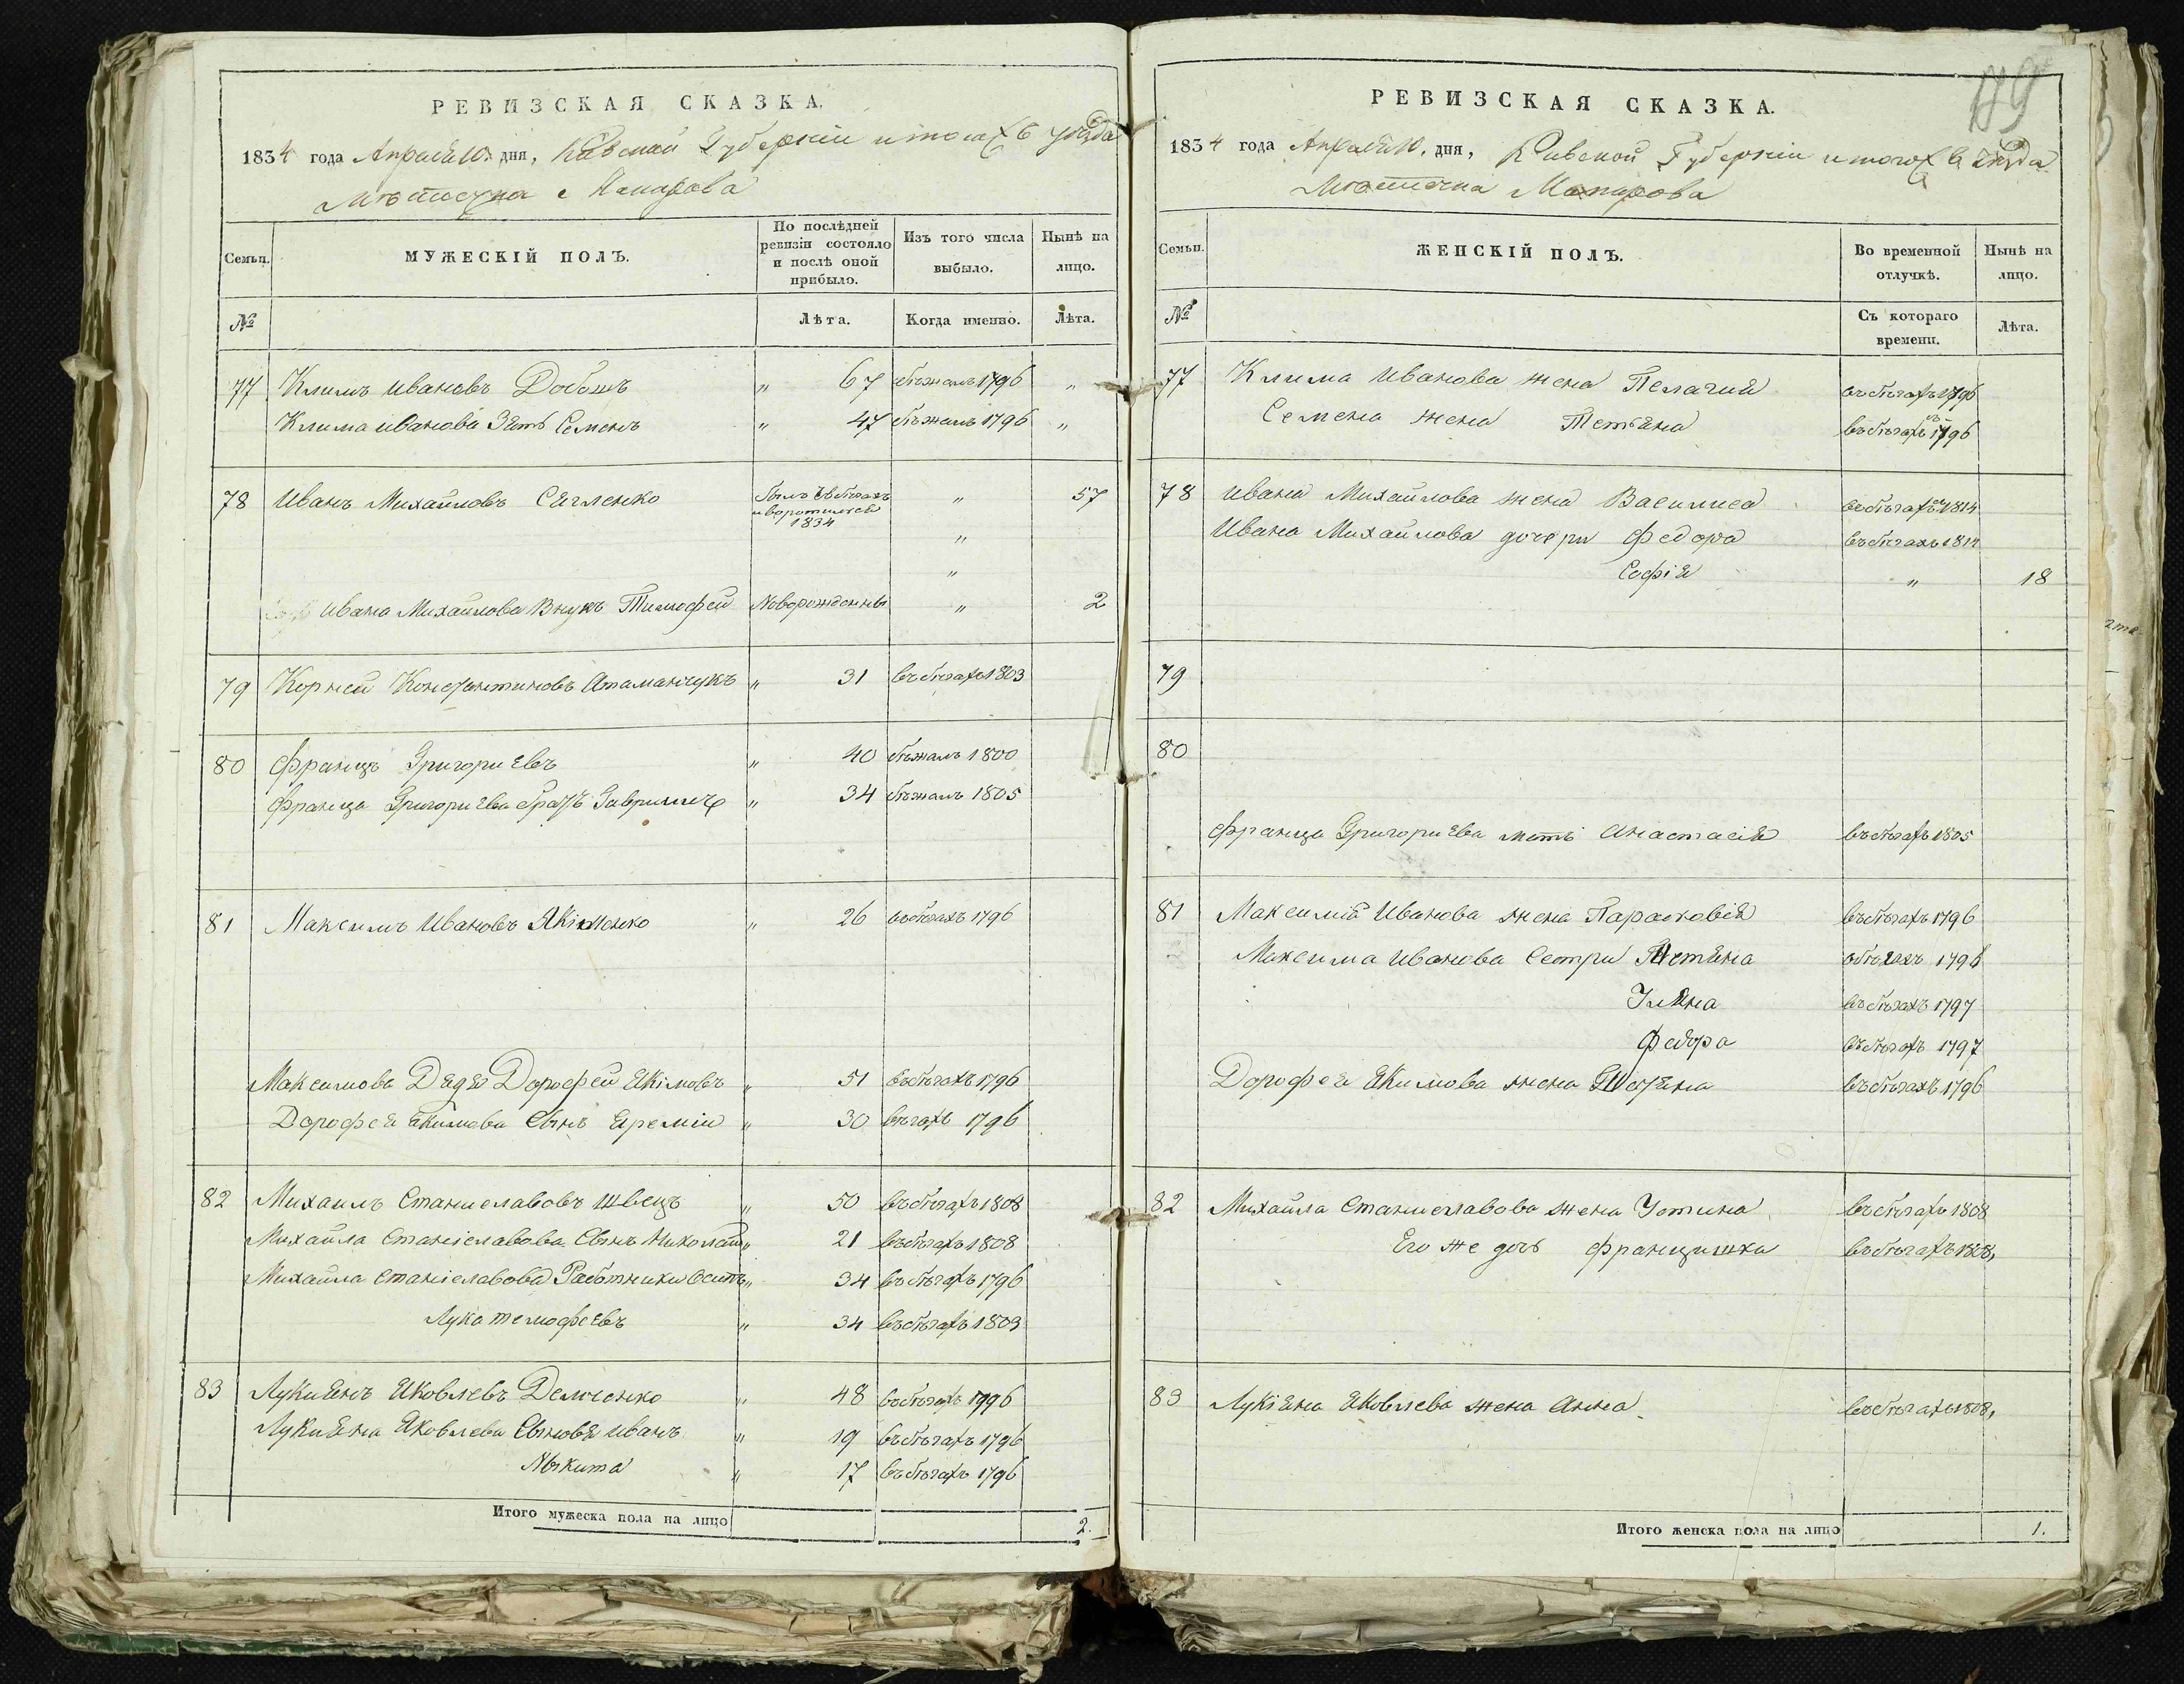 РЕВИЗСКАЯ СКАЗКА.
1834 года Апреля 10. дня, Киевской Губернии итогожъ уезда
Местечка Макарова
Семьи.
МУЖЕСКІЙ ПОЛЪ.
По послѣдней ревизіи состояло и послѣ оной прибыло.
Изъ того числа выбыло.
Нынѣ на лицо.
№
Лѣта.
Когда именно.
Лѣта.
77 Климъ Ивановъ Добошъ " 67 бѣжалъ 1796 "
Клима Иванова Зять Семенъ " 47 бѣжалъ 1796 "
78 Иванъ Михайловъ былъ въ бѣгахъ и воротился 1834 " 57
"
"
Ивана Михайлова Внукъ Тимофей Новорожденный " 2
79 Корней Константиновъ Атаманчукъ " 31 въ бѣгахъ 1803
80 Францъ Григориевъ " 40 бѣжалъ 1800
Франца Григориева братъ Гаврило " 34 бѣжалъ 1805
81 Максимъ Ивановъ Якименко " 26 въ бѣгахъ 1796
Максимовъ Дядя Дорофей Якімовъ " 51 въ бѣгахъ 1796
Дорофея Якимова Сынъ Яремій " 30 въ бѣгахъ 1796
82 Михаилъ Станиславовъ Швецъ " 50 въ бѣгахъ 1808
Михайла Станіславова Сынъ Николай " 21 въ бѣгахъ 1808
Михайла Станіславова Работники Осипъ " 34 въ бѣгахъ 1796
Лука Темофеевъ " 34 въ бѣгахъ 1803
83 Лукиянъ Яковлевъ Демченко " 48 въ бѣгахъ 1796
Лукияна Яковлева Сыновя Иванъ " 19 въ бѣгахъ 1796
Мыкита " 17 въ бѣгахъ 1796
Итого мужеска пола на лицо 2.
РЕВИЗСКАЯ СКАЗКА.
1834 года Апреля 10, дня, Киевской Губернии итогожъ уезда
Местечка Макарова
Семьи.
ЖЕНСКІЙ ПОЛЪ.
Во временной отлучкѣ.
Нынѣ на лицо.
№
Съ котораго времени.
Лѣта.
77 Клима Иванова жена Пелагия въ бѣгахъ 1796
Семена жена Тетяна въ бѣгахъ 1796
78 Ивана Михайлова жена Василиса въ бѣгахъ 1814
Ивана Михайлова дочери Федора въ бѣгахъ 1814
Софія " 18
79
80
Франца Григориева мать Анастасія въ бѣгахъ 1805
81 Максима Иванова жена Парасковія въ бѣгахъ 1796
Максима Иванова Сестри Тетяна въ бѣгахъ 1796
Уляна въ бѣгахъ 1797
Федора въ бѣгахъ 1797
Дорофея Якимова жена Тетяна въ бѣгахъ 1796
82 Михайла Станиславова жена Устина въ бѣгахъ 1808
Его же дочь Францишка въ бѣгахъ 1808,
83 Лукіяна Яковлева жена Анна въ бѣгахъ 1808,
Итого женска пола на лицо 1.